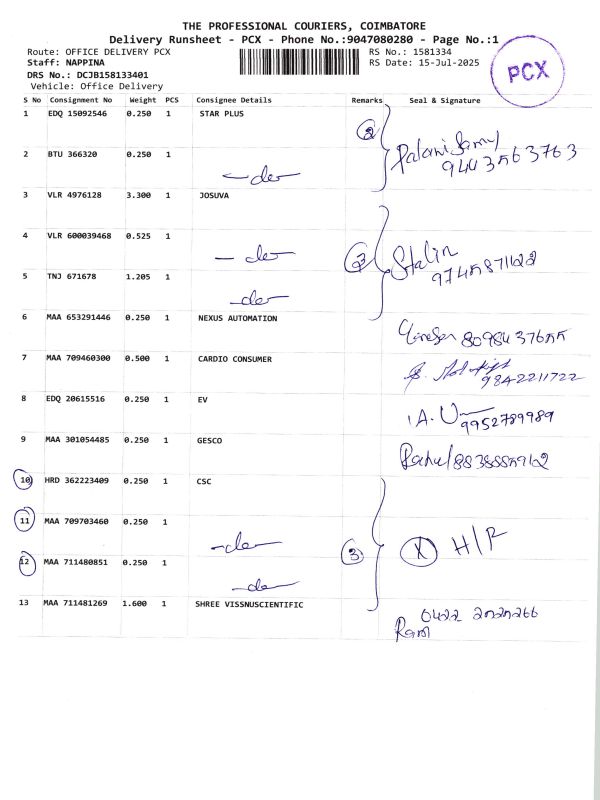 THE PROFESSIONAL COURIERS, COIMBATORE
Delivery Runsheet - PCX - Phone No.:9047080280 - Page No.:1
Route: OFFICE DELIVERY PCX RS No.: 1581334
Staff: NAPPINA RS Date: 15-Jul-2025
DRS No.: DCJB158133401
Vehicle: Office Delivery
PCX
S No Consignment No Weight PCS Consignee Details Remarks Seal & Signature
1 EDQ 15092546 0.250 1 STAR PLUS
2
2 BTU 366320 0.250 1
Palanisamy
3 VLR 4976128 3.300 1 JOSUVA
4 VLR 600039468 0.525 1
3 Stalin
5 TNJ 671678 1.205 1
6 MAA 653291446 0.250 1 NEXUS AUTOMATION
7 MAA 709460300 0.500 1 CARDIO CONSUMER
9842211722
8 EDQ 20615516 0.250 1 EV
9952789989
9 MAA 301054485 0.250 1 GESCO
Rahul
10 HRD 362223409 0.250 1 CSC
11 MAA 709703460 0.250 1
3 X H/P
12 MAA 711480851 0.250 1
13 MAA 711481269 1.600 1 SHREE VISSNUSCIENTIFIC
0422
Ram